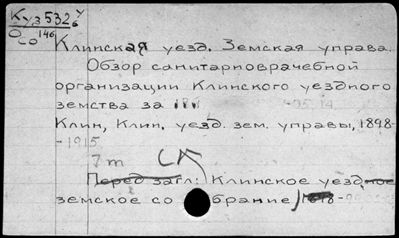 Куз 532 у
О со 146
Клинская уезд. Земская управа.
Обзор санитарноврачебной
организации Клинского уездного
земства за
Клин, Клин. уезд. зем. управы, 1898-
-1915
7 т СК
Перед загл: Клинское уездное
земское собрание